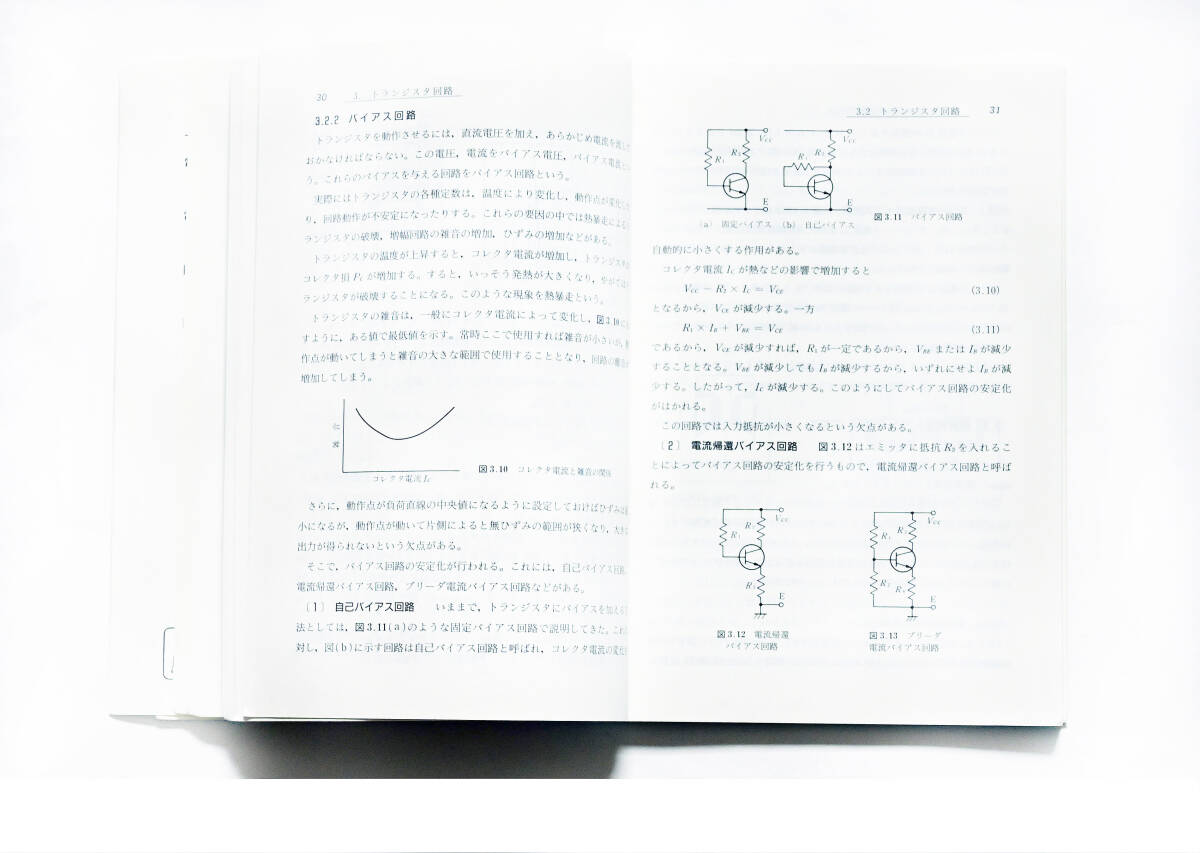 30 3. トランジスタ回路
3.2.2 バイアス回路
トランジスタを動作させるには，直流電圧を加え，あらかじめ電流を流し
おかなければならない。この電圧，電流をバイアス電圧，バイアス電流
う。これらのバイアスを与える回路をバイアス回路という。
実際にはトランジスタの各種定数は，温度により変化し，動作点が変化
り，回路動作が不安定になったりする。これらの要因の中では熱暴走による
ランジスタの破壊，増幅回路の雑音の増加，ひずみの増加などがある。
トランジスタの温度が上昇すると，コレクタ電流が増加し，トランジスタ
コレクタ損 Pc が増加する。すると，いっそう発熱が大きくなり，やがては
ランジスタが破壊することになる。このような現象を熱暴走という。
トランジスタの雑音は，一般にコレクタ電流によって変化し，図3.10に
すように，ある値で最低値を示す。常時ここで使用すれば雑音が小さいが，
作点が動いてしまうと雑音の大きな範囲で使用することとなり，回路の雑音
増加してしまう。
雑音
コレクタ電流 Ic
図3.10 コレクタ電流と雑音の関係
さらに，動作点が負荷直線の中央値になるように設定しておけばひずみは
小になるが，動作点が動いて片側によると無ひずみの範囲が狭くなり，大き
出力が得られないという欠点がある。
そこで，バイアス回路の安定化が行われる。これには，自己バイアス回路，
電流帰還バイアス回路，ブリーダ電流バイアス回路などがある。
〔1〕 自己バイアス回路 いままで，トランジスタにバイアスを加える
法としては，図3.11(a)のような固定バイアス回路で説明してきた。これに
対し，図(b)に示す回路は自己バイアス回路と呼ばれ，コレクタ電流の変化
3.2 トランジスタ回路 31
R1 R2 Vcc E
R1 R2 Vcc E
(a) 固定バイアス (b) 自己バイアス
図3.11 バイアス回路
自動的に小さくする作用がある。
コレクタ電流 IC が熱などの影響で増加すると
VCC − R2 × IC = VCE (3.10)
となるから，VCE が減少する。一方
R1 × IB + VBE = VCE (3.11)
であるから，VCE が減少すれば，R1 が一定であるから，VBE または IB が減少
することとなる。VBE が減少しても IB が減少するから，いずれにせよ IB が減
少する。したがって，IC が減少する。このようにしてバイアス回路の安定化
がはかれる。
この回路では入力抵抗が小さくなるという欠点がある。
〔2〕 電流帰還バイアス回路 図3.12はエミッタに抵抗 R3 を入れるこ
とによってバイアス回路の安定化を行うもので，電流帰還バイアス回路と呼ば
れる。
R1 R2 Vcc R3 E
R1 R2 Vcc R3 R4 E
図3.12 電流帰還
バイアス回路
図3.13 ブリーダ
電流バイアス回路